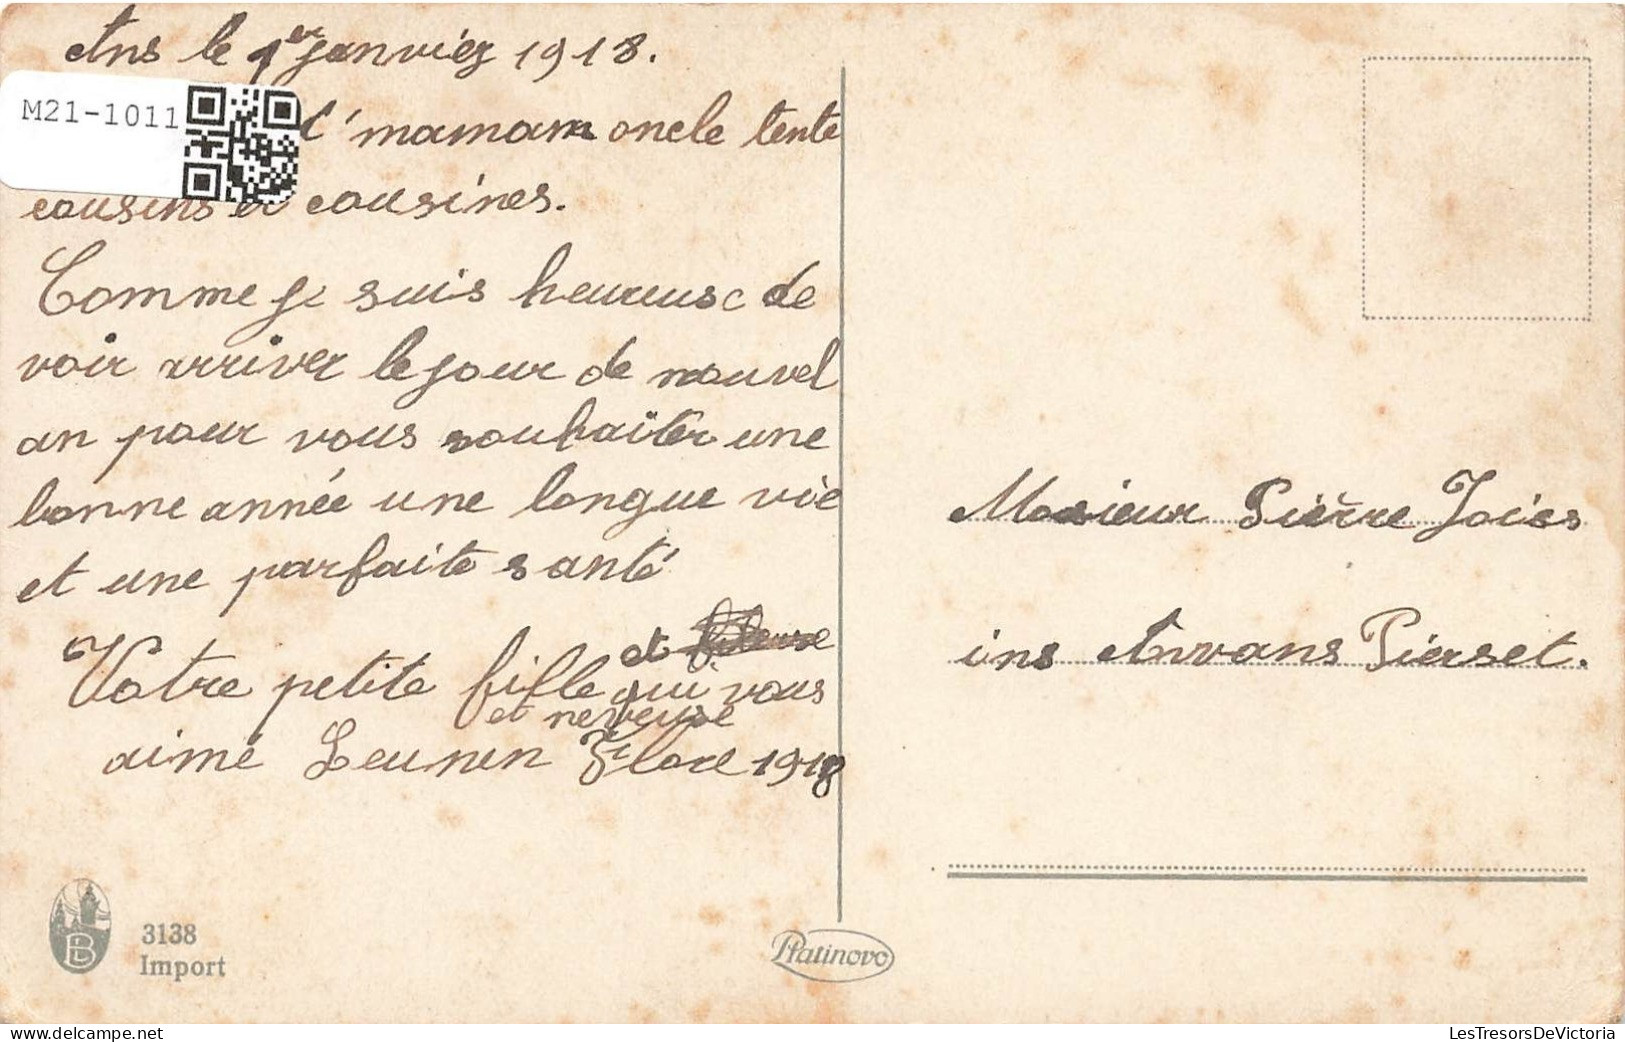 Ans le 1er janvier 1918.
M21-1011
et mamam oncle tente
cousins et cousines.
Comme je suis heureuse de
voir arriver le jour de nouvel
an pour vous souhaiter une
bonne année une longue vie
et une parfaite santé
et
Votre petite fille qui vous
et neveuse
aimé Leunen Flore 1918
Mosieur Pièrre Joies
ins Awans Pierset.
3138
Import
EB
Platinovo
LesTresorsDeVictoria